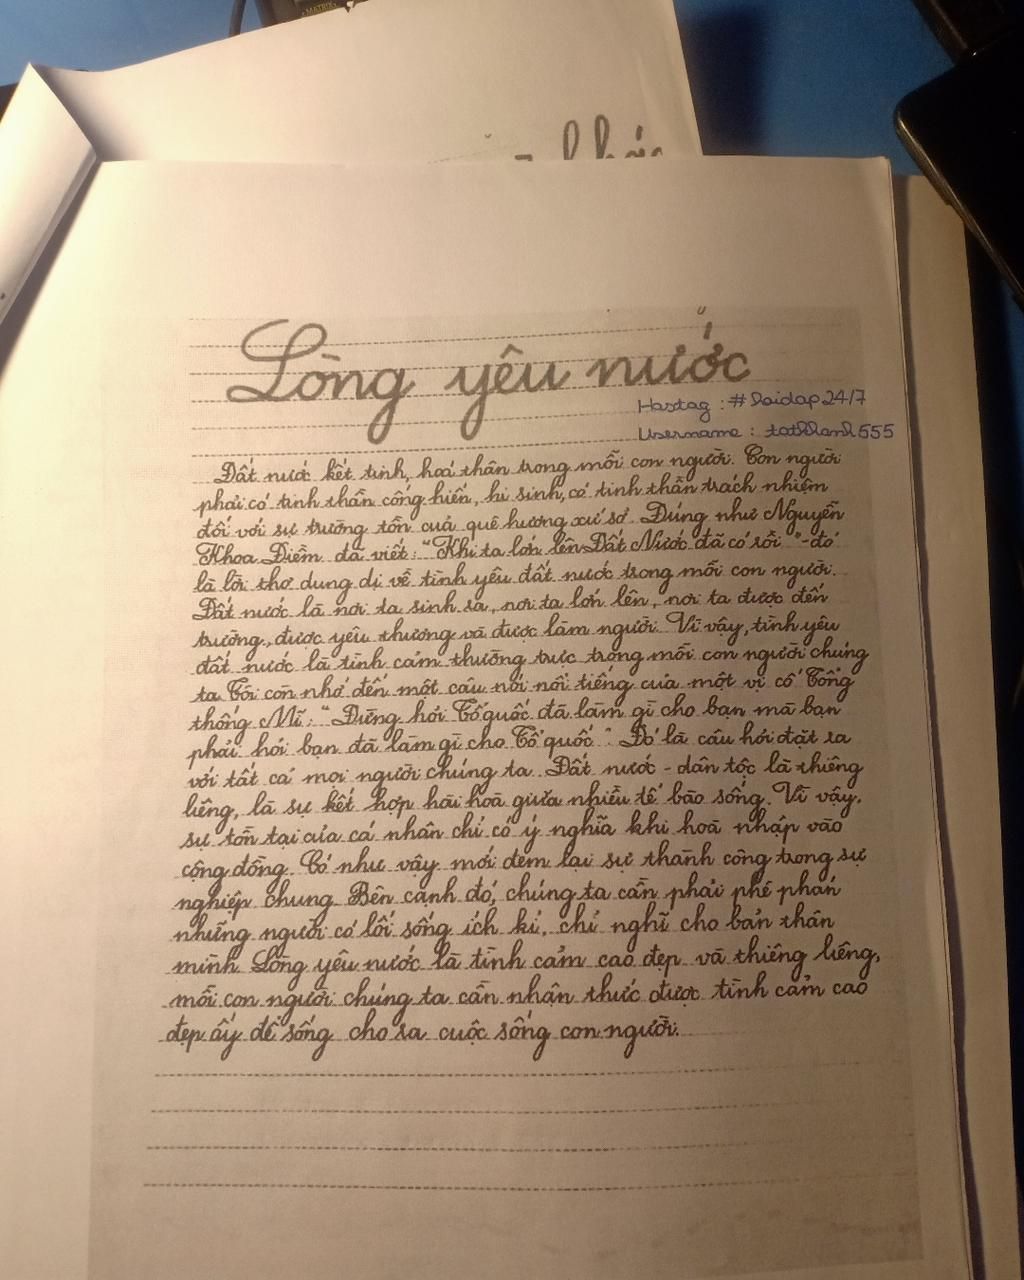 MATRIX
khác
Lòng yêu nước
Hastag : #hoidap24/7
Username : tathkanh555
Đất nước kết tinh, hoá thân trong mỗi con người. Con người
phải có tinh thần cống hiến, hi sinh, có tinh thần trách nhiệm
đối với sự trường tồn của quê hương xứ sở. Đúng như Nguyễn
Khoa Điềm đã viết: "Khi ta lớn lên Đất Nước đã có rồi" - đó
là lời thơ dung dị về tình yêu đất nước trong mỗi con người.
Đất nước là nơi ta sinh ra, nơi ta lớn lên, nơi ta được đến
trường, được yêu thương và được làm người. Vì vậy, tình yêu
đất nước là tình cảm thường trực trong mỗi con người chúng
ta. Tôi còn nhớ đến một câu nói nổi tiếng của một vị cố Tổng
thống Mĩ: "Đừng hỏi Tổ quốc đã làm gì cho bạn mà bạn
phải hỏi bạn đã làm gì cho Tổ quốc". Đó là câu hỏi đặt ra
với tất cả mọi người chúng ta. Đất nước - dân tộc là thiêng
liêng, là sự kết hợp hài hoà giữa nhiều tế bào sống. Vì vậy,
sự tồn tại của cá nhân chỉ có ý nghĩa khi hoà nhập vào
cộng đồng. Có như vậy mới đem lại sự thành công trong sự
nghiệp chung. Bên cạnh đó, chúng ta cần phải phê phán
những người có lối sống ích kỉ, chỉ nghĩ cho bản thân
mình. Lòng yêu nước là tình cảm cao đẹp và thiêng liêng,
mỗi con người chúng ta cần nhận thức được tình cảm cao
đẹp ấy để sống cho ra cuộc sống con người.